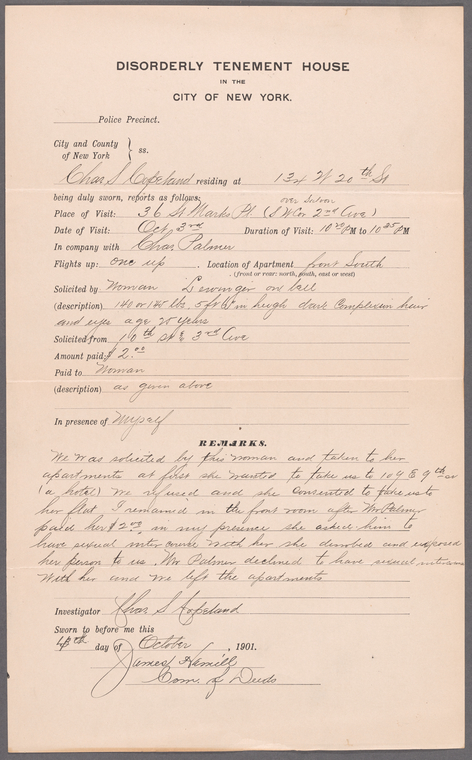 DISORDERLY TENEMENT HOUSE
IN THE
CITY OF NEW YORK.
Police Precinct.
City and County
of New York } ss.
Chas S Copeland residing at 134 W 20th St
being duly sworn, reports as follows: over Saloon
Place of Visit: 36 St Marks Pl (S W Cor 2nd Ave)
Date of Visit: Oct 3rd Duration of Visit: 10 PM to 10 PM
In company with Chas Palmer
Flights up: One up Location of Apartment front South
(front or rear: north, south, east or west)
Solicited by Woman on bell
(description) 140 or 145 lbs. 5 ft in heigh dark Complexion hair
and eyes age 20 years
Solicited from 10th St & 3rd Ave
Amount paid: $2.00
Paid to Woman
(description) as given above
In presence of Myself
REMARKS.
We was solicited by this woman and taken to her
apartments at first she wanted to take us to 104 E 9th
(a hotel) we refused and she consented to take us to
her flat I remained in the front room after Mr Palmer
paid her $2.00 in my presence she asked him to
have sexual intercourse with her she and exposed
her person to us. Mr Palmer declined to have sexual
with her and we left the apartments
Investigator Chas S Copeland
Sworn to before me this
4th day of October, 1901.
James Hamill
Com. of Deeds